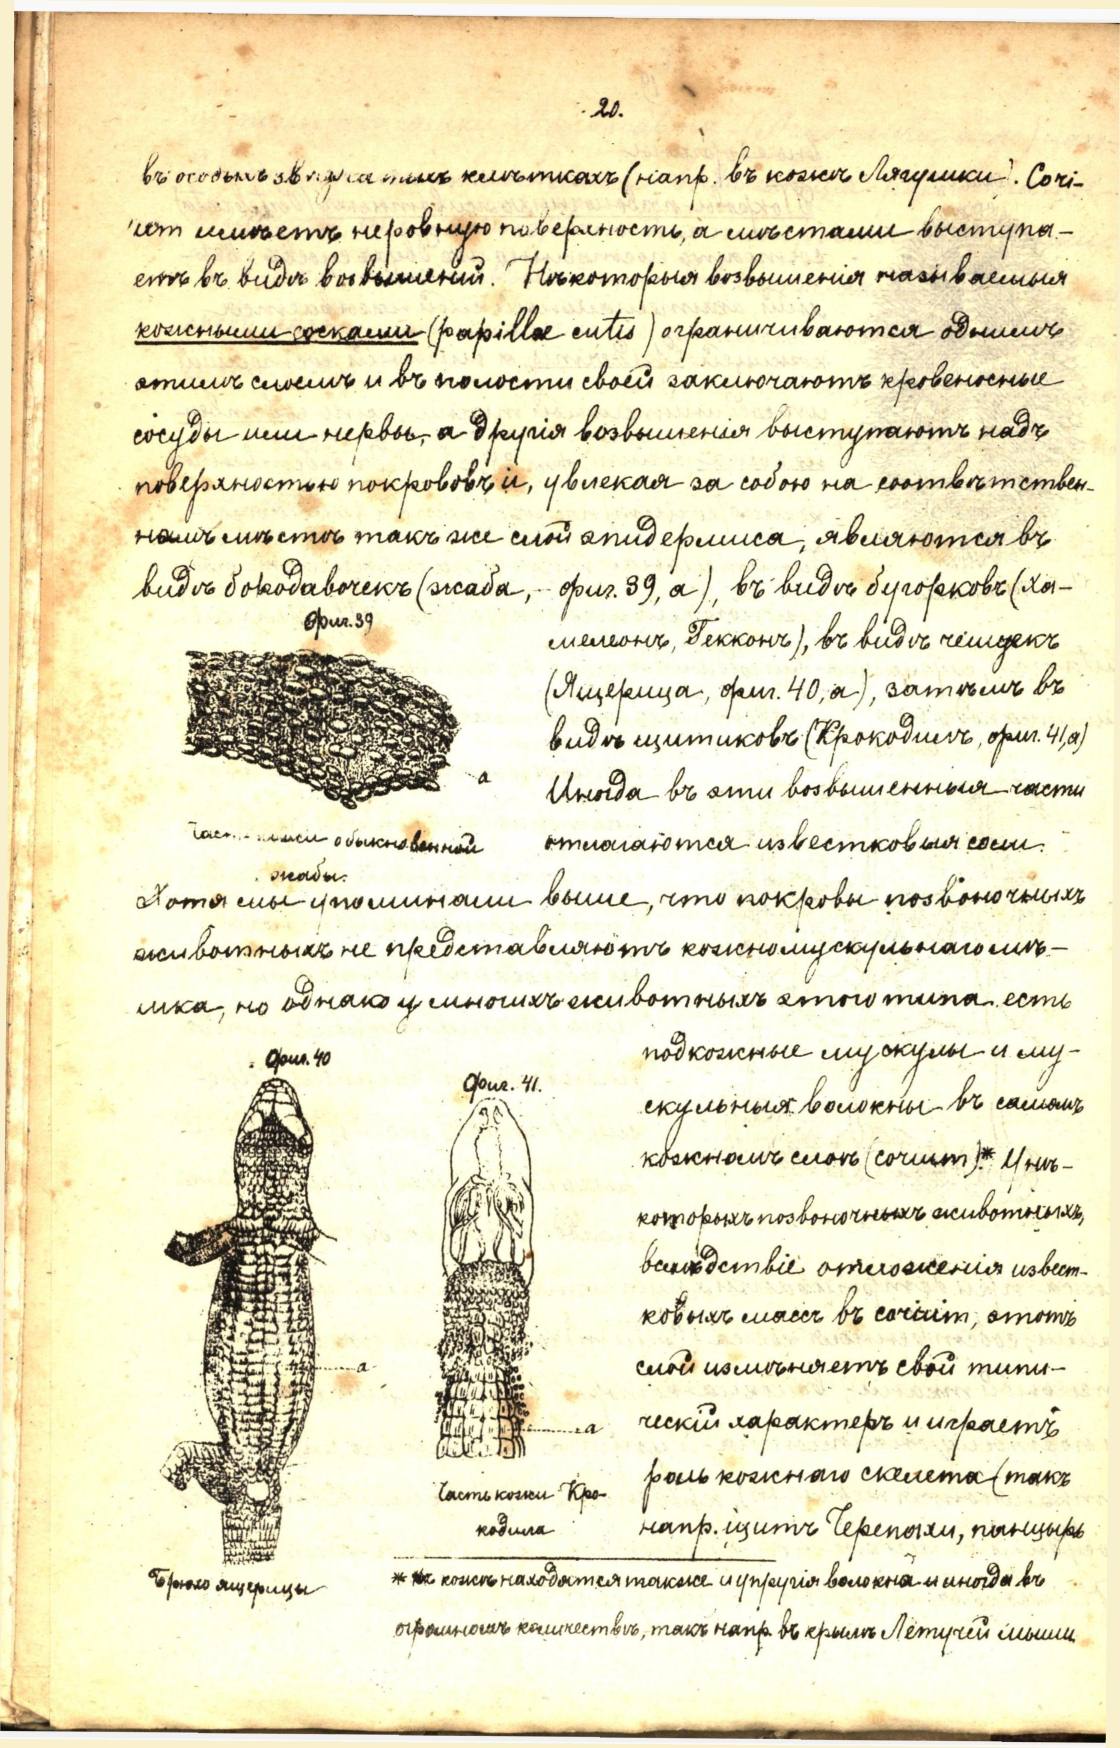 20.
въ особыхъ звѣздчатыхъ клѣткахъ (напр. въ кожѣ Лягушки). Cori-
um имѣетъ неровную поверхность, а мѣстами выступа-
етъ въ видѣ возвышеній. Нѣкоторыя возвышенія называемыя
кожными сосками (papillæ cutis) ограничиваются однимъ
этимъ слоемъ и въ полости своей заключаютъ кровеносные
сосуды или нервы, а другія возвышенія выступаютъ надъ
поверхностью покрововъ и, увлекая за собою на соотвѣтствен-
номъ мѣстѣ также слой эпидермиса, являются въ
видѣ бородавочекъ (жаба, фиг. 39, а), въ видѣ бугорковъ (Ха-
мелеонъ, Гекконъ), въ видѣ чешуекъ
(Ящерица, фиг. 40, а), затѣмъ въ
видѣ щитиковъ (Крокодилъ, фиг. 41, а)
Иногда въ эти возвышенныя части
отлагаются известковыя соли.
Фиг. 39
а
Часть кожи обыкновенной
жабы.
Хотя мы упоминали выше, что покровы позвоночныхъ
животныхъ не представляютъ кожномускульнаго мѣ-
шка, но однако у многихъ животныхъ этого типа есть
подкожные мускулы и му-
скульныя волокны въ самомъ
кожномъ слоѣ (corium).* У нѣ-
которыхъ позвоночныхъ животныхъ,
вслѣдствіе отложенія извест-
ковыхъ массъ въ corium, этотъ
слой измѣняетъ свой типи-
ческій характеръ и играетъ
роль кожнаго скелета (такъ
напр. щитъ Черепахи, панцырь
Фиг. 40
а
Брюхо ящерицы
Фиг. 41.
а
Часть кожи Кро-
кодила
* Въ кожѣ находятся также и упругія волокна и иногда въ
огромномъ количествѣ, такъ напр. въ крылѣ Летучей мыши